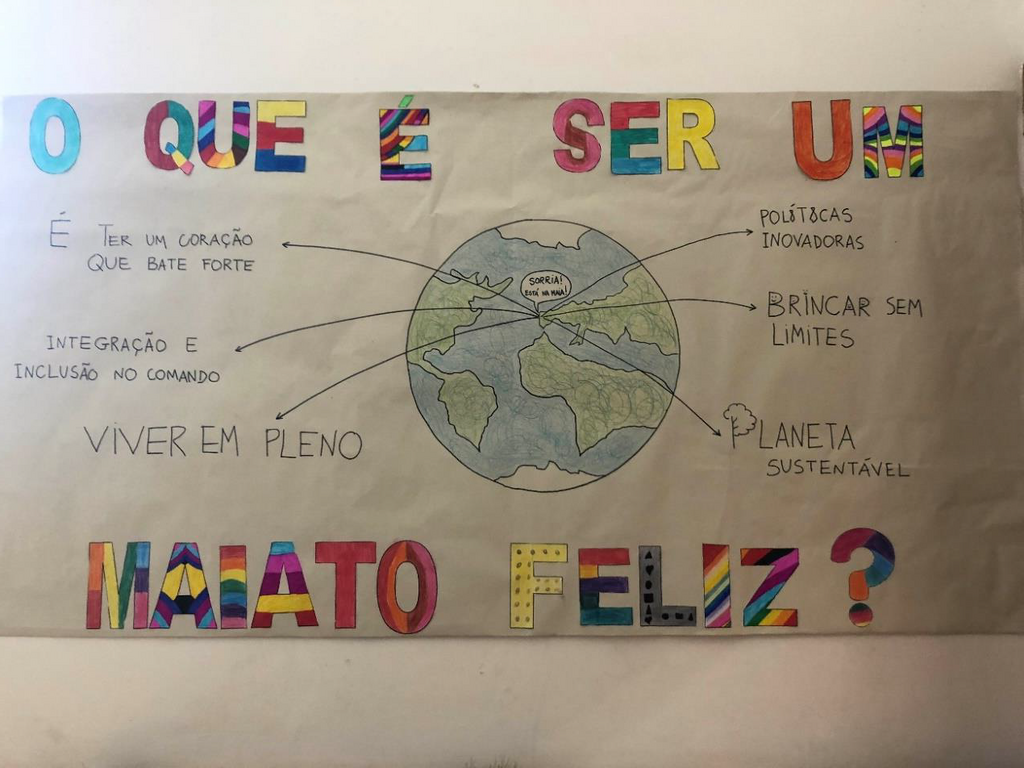 O QUE É SER UM
É TER UM CORAÇÃO
QUE BATE FORTE
INTEGRAÇÃO E
INCLUSÃO NO COMANDO
VIVER EM PLENO
SORRIA!
ESTÁ NA MAIA!
POLÍTICAS
INOVADORAS
BRINCAR SEM
LIMITES
PLANETA
SUSTENTÁVEL
MAIATO FELIZ?